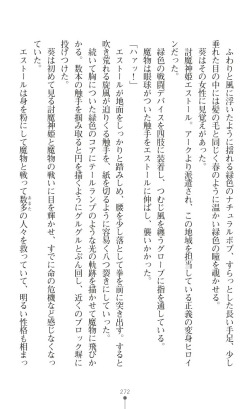 ふわりと風に浮いたように揺れる緑色のナチュラルボブ、すらっとした長い手足、少し
垂れた目の中には髪の毛と同じく春のように温かい緑色の瞳を覗かせる。
葵はその女性に見覚えがあった。
討魔神姫エストール。アークより派遣され、この地域を担当している正義の変身ヒロイ
ンだった。
緑色の戦闘デバイスを四肢に装着し、つむじ風を纏うグローブに指を通す。
魔物は眼球がついた触手をエストールに伸ばし、襲いかかった。
「ハァッ！」
エストールが地面をしっかりと踏みしめ、腰を少し落として拳を前に突き出す。すると
吹き荒れる旋風が迫りくる触手を、紙を切るように容易く八つ裂きにしていった。
続いて胸についた緑色のコアにテールランプのような光の軌跡を描かせて魔物に飛びか
かる。数本の触手を掴み取ると円を描くようにグルグルとぶん回し、近くのブロック塀に
投げつけた。
葵は初めて見る討魔神姫と魔物の戦いに目を輝かせ、すでに命の危機など感じなくなっ
ていた。
エストールは身を粉にして魔物と戦って数多の人々を救っていて、明るい性格も相まっ
272